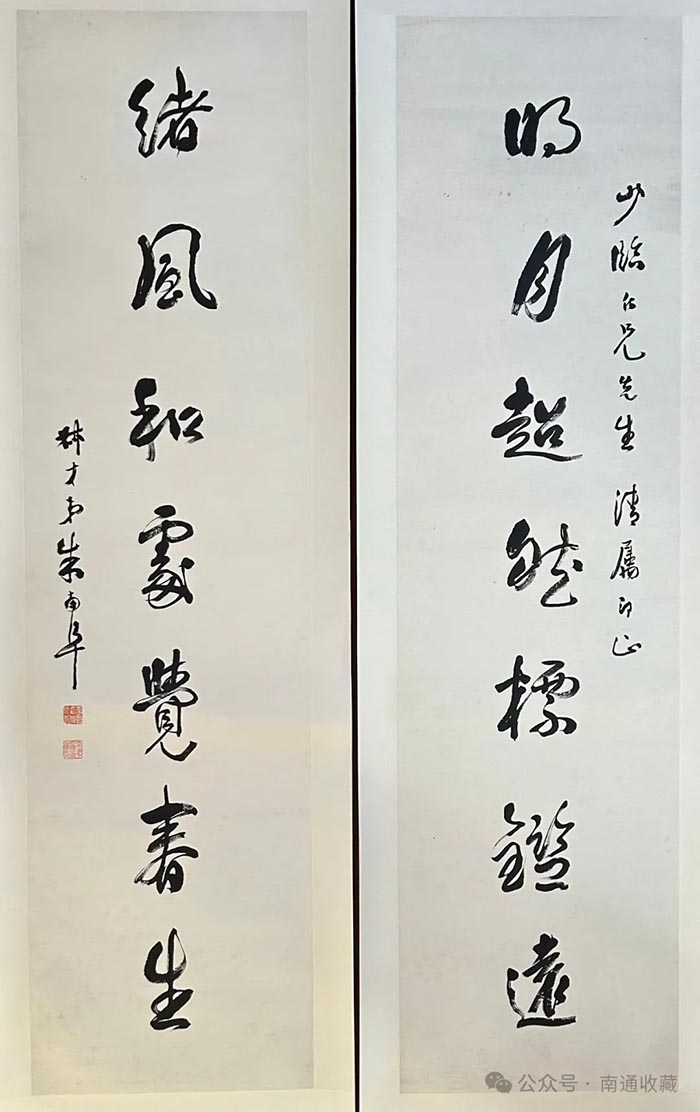 明月超然標鑑遠
少臨仁兄先生 清屬印正
緒風和處覺春生
才弟朱南阜
公众号·南通收藏